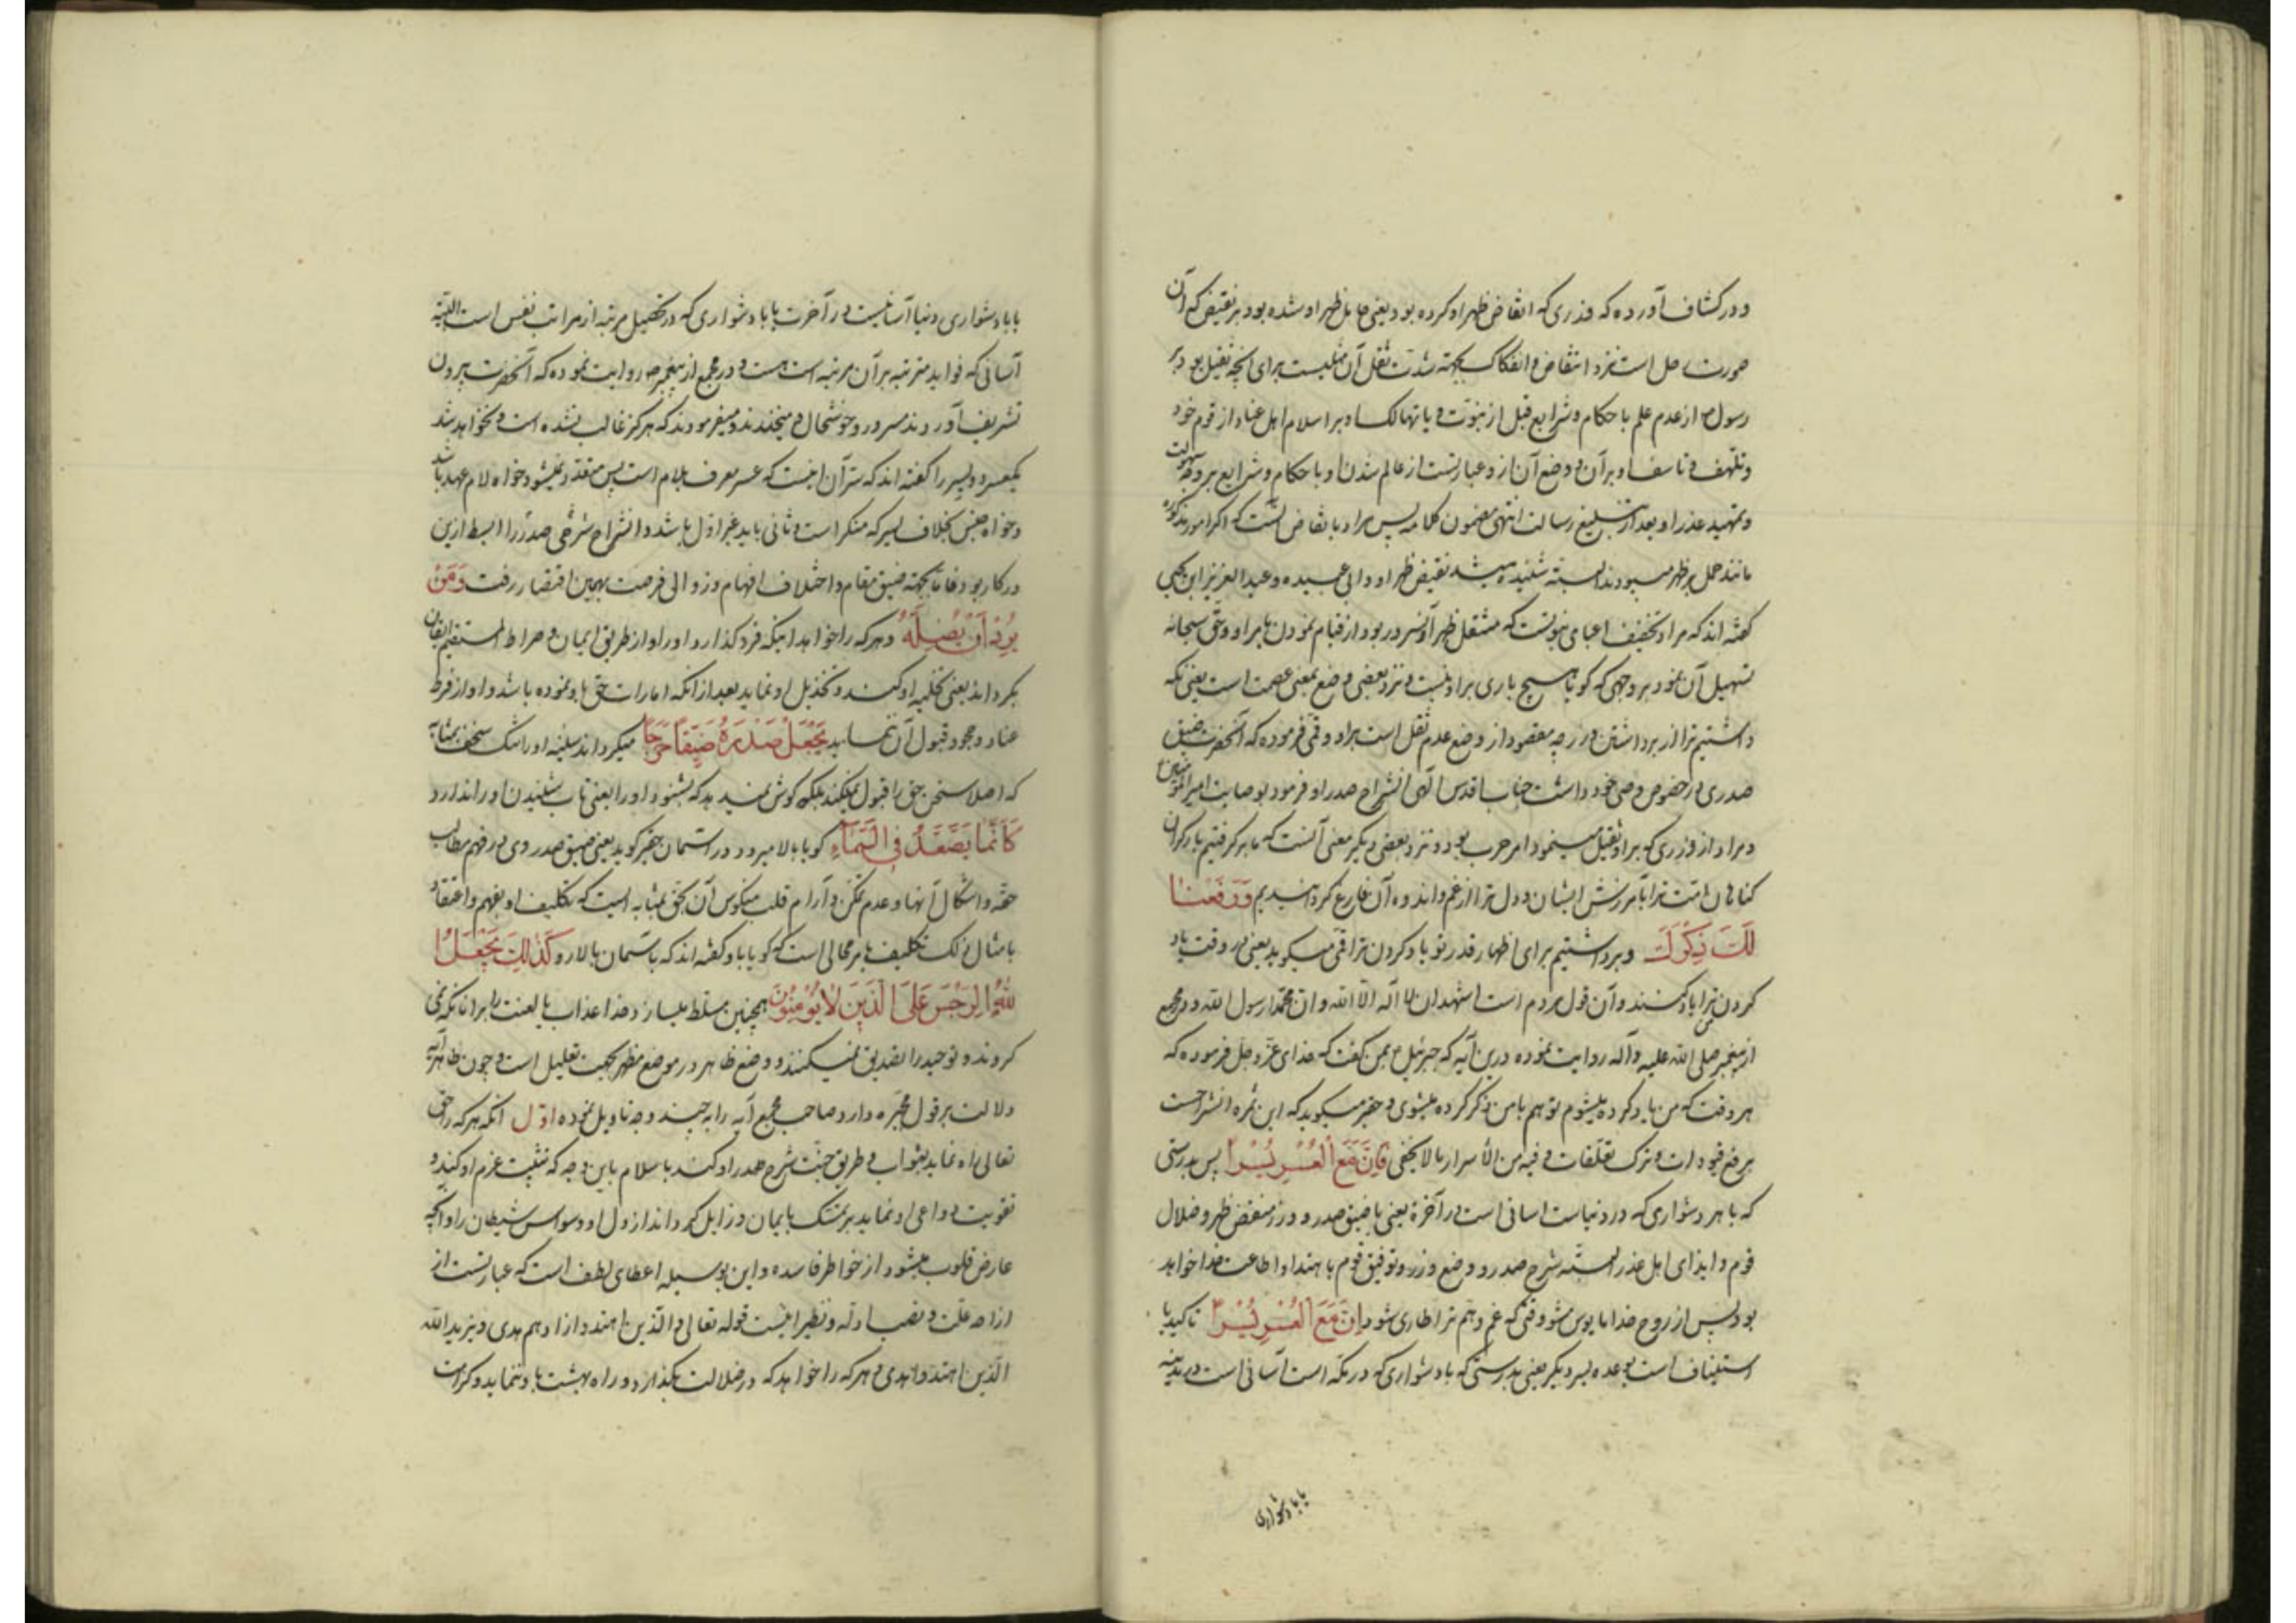 و در کشاف آورده که وزری که انقاض ظهر او کرده بود یعنی حامل ظهر او شده بود بر نقیض که آن
صورت حمل است نزد انتقاض و انفکاک بجهة شدت ثقل آن مثلیست برای آنچه ثقیل بود بر
رسول از عدم علم باحکام و شرایع قبل از نبوت و یا تهالک او بر اسلام اهل عناد از قوم خود
و تلهف و تاسف او بر آن و وضع آن ازو عبارتست از عالم شدن او باحکام و شرایع بر وجه سهولت
و تمهید عذر او بعد از تبلیغ رسالت انتهی مضمون کلامه پس مراد بانقاض آنست که اگر امور مذکوره
مانند حمل بر ظهر میبودند البته شنیده میشد نقیض ظهر او و ابی عبیده و عبد العزیز ابن یحیی
گفته اند که مراد تخفیف اعبای نبوتست که مثقل ظهر آنسرور بود از قیام نمودن بامر او و حق سبحانه
تسهیل آن نمود بر وجهی که گویا هیچ باری برو نیست و نزد بعضی وضع بمعنی عصمت است یعنی نگه
داشتیم ترا از برداشتن وزر چه مقصود از وضع عدم ثقل است برو و قمی فرموده که آنحضرت ضیق
صدری در خصوص وصی خود داشت جناب اقدس الهی انشراح صدر او فرمود بوصایت امیر المؤمنین
و مراد از وزری که برو ثقیل مینمود امر حرب بود و نزد بعضی دیگر معنی آنست که ما بر گرفتیم بار گران
گناهان امت ترا بآمرزش ایشان و دل ترا از غم و اندوه آن فارغ گردانیدیم وَرَفَعْنَا
لَكَ ذِكْرَكَ و برداشتیم برای اظهار قدر تو یاد کردن ترا قمی میگوید یعنی در وقت یاد
کردن من ترا یاد کنند و آن قول مردم است اشهد ان لا اله الا الله و ان محمدا رسول الله و در مجمع
از پیغمبر صلی الله علیه و آله روایت نموده درین آیه که جبرئیل بمن گفت که خدای عز و جل فرموده که
هر وقت که من یاد کرده میشوم تو هم با من ذکر کرده میشوی و حقیر میگوید که این ثمره انشراحست
برفع قیودات و ترک تعلقات و فیه من الاسرار ما لا یخفی فَإِنَّ مَعَ الْعُسْرِ يُسْرًا پس بدرستی
که با هر دشواری که در دنیاست اسانی است در آخرة یعنی با ضیق صدر و وزر منقض ظهر و ضلال
قوم و ایذای اهل عذر البته شرح صدر و وضع وزر و توفیق قوم باهتدا و اطاعت خدا خواهد
بود پس از روح خدا مایوس مشو وقتی که غم و هم ترا طاری شود إِنَّ مَعَ الْعُسْرِ يُسْرًا تاکید یا
استیناف است بوعده یسر دیگر یعنی بدرستی که با دشواری که در مکه است آسانی است در مدینه
یا با دشواری
یا با دشواری دنیا آسانیست در آخرت یا با دشواری که در تحصیل مرتبه از مراتب نفس است البته
آسانی که فواید مترتبه بر آن مرتبه است هست و در مجمع از پیغمبر ص روایت نموده که آنحضرت بیرون
تشریف آوردند مسرور و خوشحال و میخندند و میفرمودند که هرگز غالب نشده است و نخواهد شد
یکعسر دو یسر را گفته اند که سر آن اینست که عسر معرف بلام است پس متعدد نمیشود خواه لام عهد باشد
و خواه جنس بخلاف یسر که منکر است و ثانی باید غیر اول باشد و انشراح شرحی صدر را ابسط ازین
در کار بود فاما بجهة ضیق مقام و اختلاف افهام و زوالی فرصت بهمین اقتصار رفت وَمَنْ
يُرِدْ أَنْ يُضِلَّهُ و هر که را خواهد اینکه فرو گذارد او را و از طریق ایمان و صراط المستقیم ایقان
بگرداند یعنی تخلیه او کند و تخذیل او نماید بعد از آنکه امارات حق باو نموده باشد و او از فرط
عناد و جحود قبول آن ننماید يَجْعَلْ صَدْرَهُ ضَيِّقًا حَرَجًا میگرداند سینه او را تنگ سخت بمثابه
که اصلا سخن حق را قبول نمیکند بلکه گوش نمیدهد که بشنود او را یعنی تاب شنیدن او را ندارد
كَأَنَّمَا يَصَّعَّدُ فِي السَّمَاءِ گویا بالا میرود در آسمان حقیر گوید یعنی ضیق صدر وی در فهم مطالب
حقه و اشکال آنها و عدم تمکن و آرام قلب منکوس آن بحق بمثابه ایست که تکلیف او بفهم و اعتقاد
بامثال ذلک تکلیف بامر محالی است که گویا باو گفته اند که باسمان بالا رو كَذَلِكَ يَجْعَلُ
اللَّهُ الرِّجْسَ عَلَى الَّذِينَ لَا يُؤْمِنُونَ همچنین مسلط میسازد خدا عذاب یا لعنت را بر انانکه نمی
گروند و توحید را تصدیق نمیکنند و وضع ظاهر در موضع مظهر بجهت تعلیل است و چون ظاهر آیه
دلالت بر قول مجبره دارد صاحب مجمع آیه را به چند وجه تاویل نموده اول آنکه هر که را حق
تعالی راه نماید بثواب و طریق جنت شرح صدر او کند باسلام باین وجه که تثبیت عزم او کند و
تقویت دواعی او نماید بر تمسک بایمان و زایل گرداند از دل او وسواس شیطان را و آنچه
عارض قلوب میشود از خواطر فاسده و این بوسیله اعطای لطف است که عبارتست از
ازاحه علت و نصب ادله و نظیر اینست قوله تعالی و الذین اهتدوا زادهم هدی و یزید الله
الذین اهتدوا هدی و هر که را خواهد که در ضلالت بگذارد و راه بهشت باو ننماید و کرامت